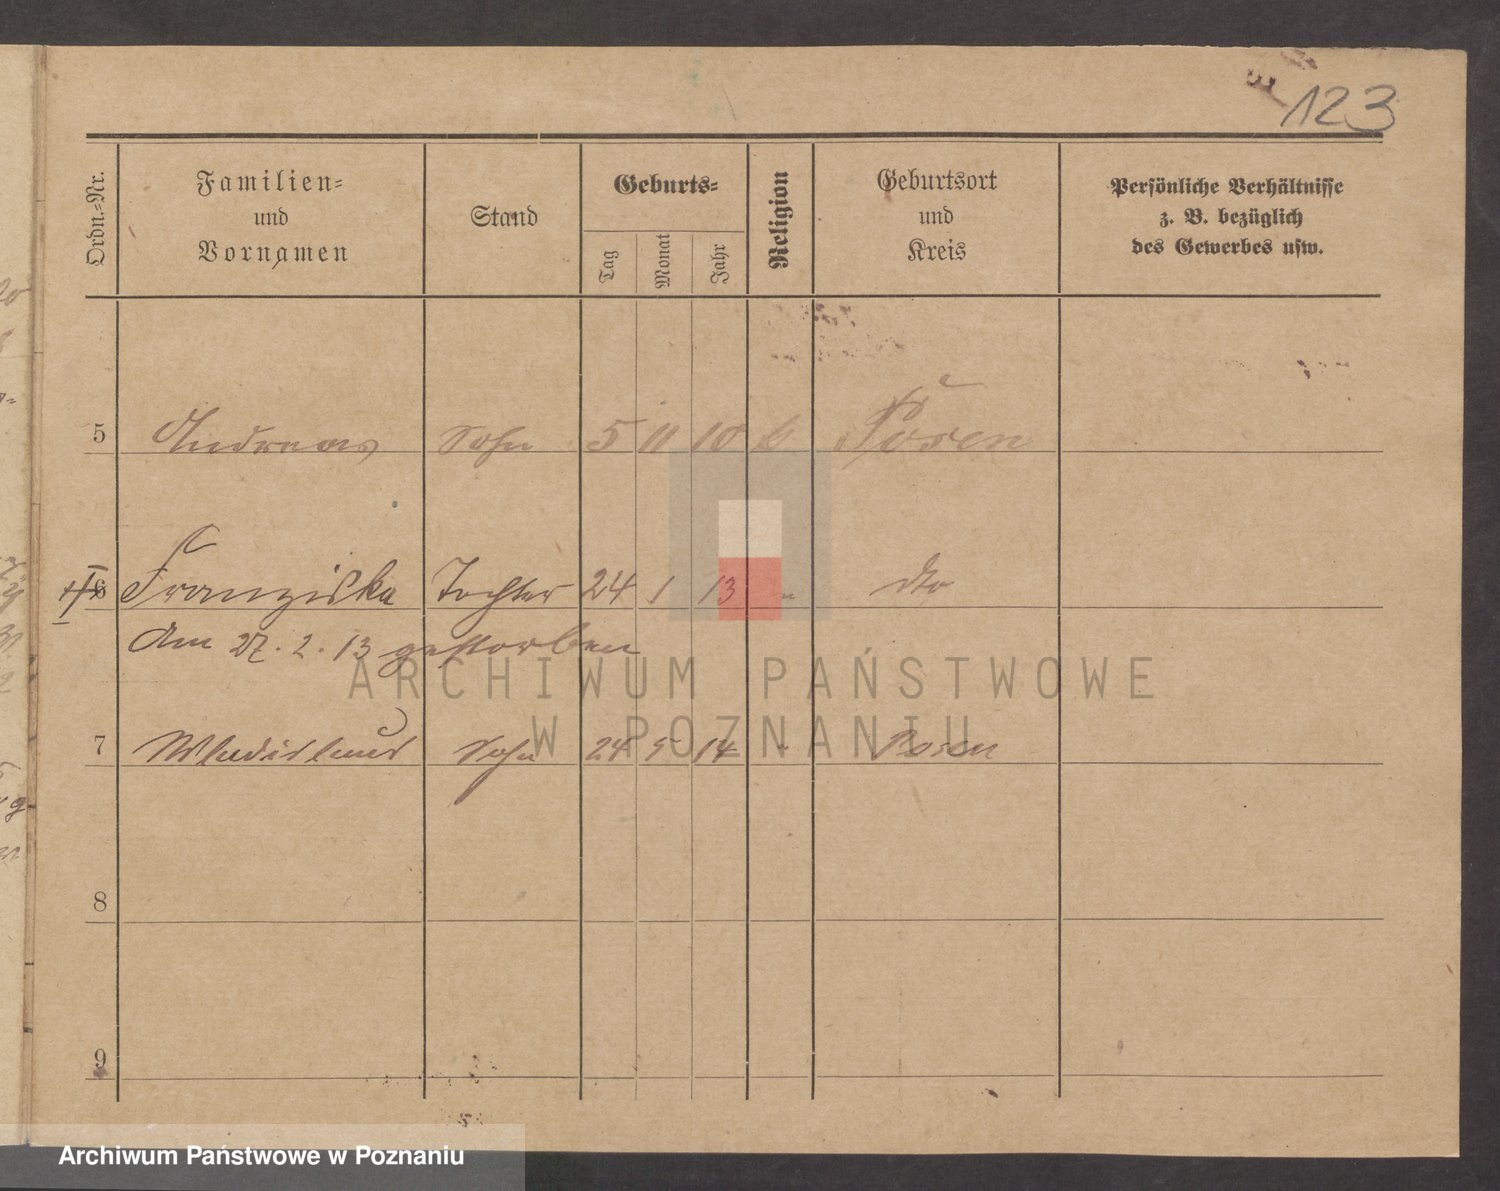 123
Ordn.-Nr.
Familien-
und
Vornamen
Stand
Geburts-
Tag
Monat
Jahr
Religion
Geburtsort
und
Kreis
Persönliche Verhältnisse
z. B. bezüglich
des Gewerbes usw.
5 Andreas Sohn 5 11 10 k Posen
6 Franziska Tochter 24 1 13 " dto
Am 27. 2. 13 gestorben
ARCHIWUM PAŃSTWOWE
W POZNANIU
7 Wladislaus Sohn 24 5 14 " Posen
8
9
Archiwum Państwowe w Poznaniu